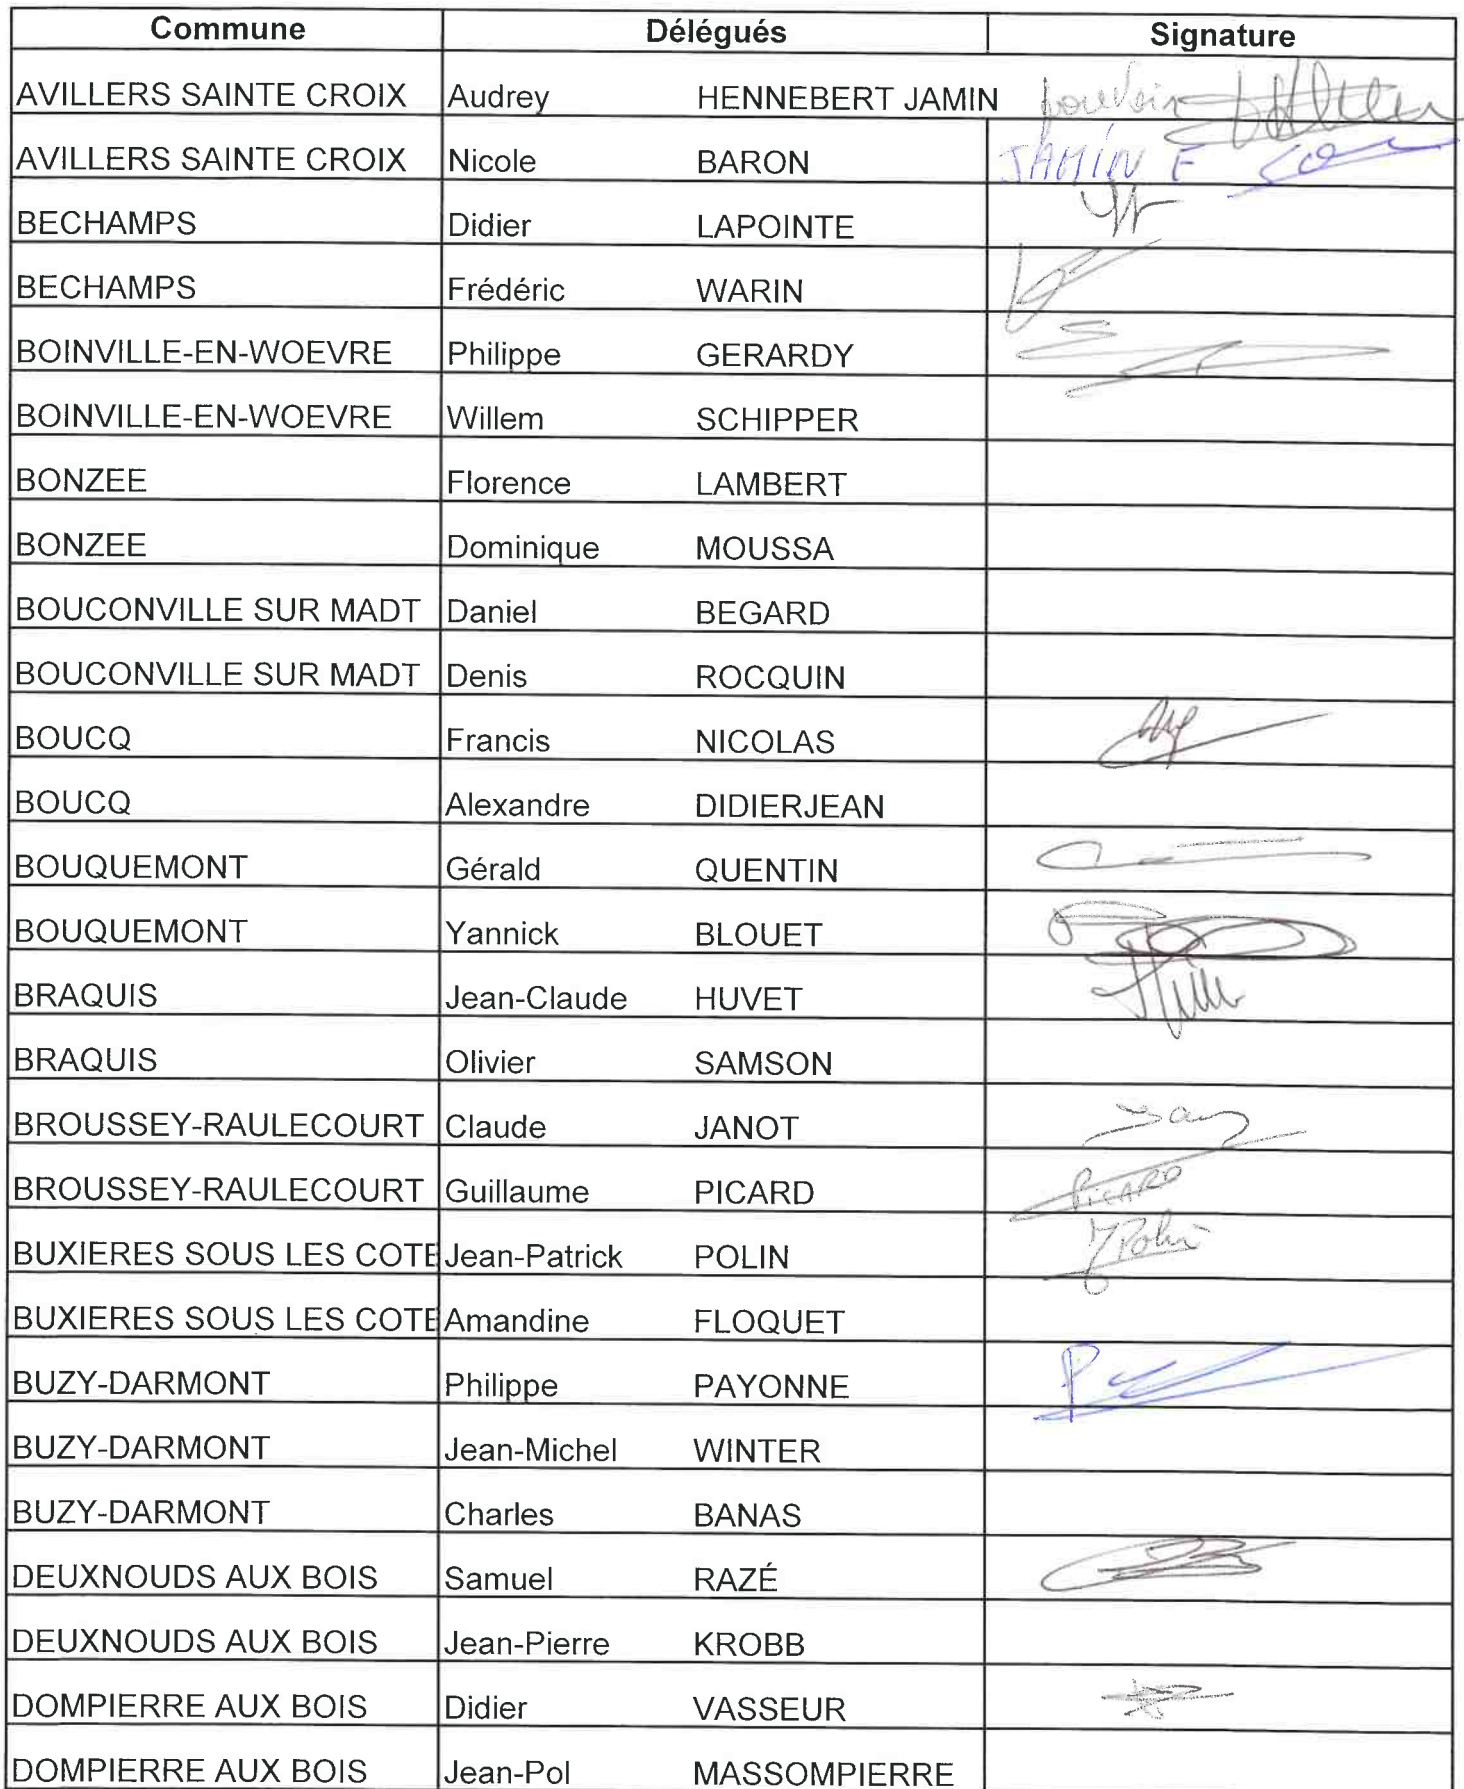 Commune Délégués Signature
AVILLERS SAINTE CROIX Audrey HENNEBERT JAMIN pouvoir
AVILLERS SAINTE CROIX Nicole BARON JAMIN F
BECHAMPS Didier LAPOINTE
BECHAMPS Frédéric WARIN
BOINVILLE-EN-WOEVRE Philippe GERARDY
BOINVILLE-EN-WOEVRE Willem SCHIPPER
BONZEE Florence LAMBERT
BONZEE Dominique MOUSSA
BOUCONVILLE SUR MADT Daniel BEGARD
BOUCONVILLE SUR MADT Denis ROCQUIN
BOUCQ Francis NICOLAS
BOUCQ Alexandre DIDIERJEAN
BOUQUEMONT Gérald QUENTIN
BOUQUEMONT Yannick BLOUET
BRAQUIS Jean-Claude HUVET
BRAQUIS Olivier SAMSON
BROUSSEY-RAULECOURT Claude JANOT
BROUSSEY-RAULECOURT Guillaume PICARD PICARD
BUXIERES SOUS LES COTE Jean-Patrick POLIN Polin
BUXIERES SOUS LES COTE Amandine FLOQUET
BUZY-DARMONT Philippe PAYONNE
BUZY-DARMONT Jean-Michel WINTER
BUZY-DARMONT Charles BANAS
DEUXNOUDS AUX BOIS Samuel RAZÉ
DEUXNOUDS AUX BOIS Jean-Pierre KROBB
DOMPIERRE AUX BOIS Didier VASSEUR
DOMPIERRE AUX BOIS Jean-Pol MASSOMPIERRE